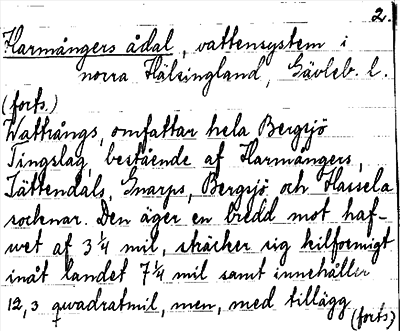 2.
Harmångers ådal, vattensystem i
norra Hälsingland, Gävleb. l.
(forts.)
Wattrångs, omfattar hela Bergsjö
Tingslag, bestående af Harmångers,
Jättendals, Gnarps, Bergsjö och Hassela
socknar. Den äger en bredd mot haf-
wet af 3 1/4 mil, sträcker sig kilformigt
inåt landet 7 1/4 mil samt innehåller
12,3 qwadratmil, men, med tillägg
(forts)